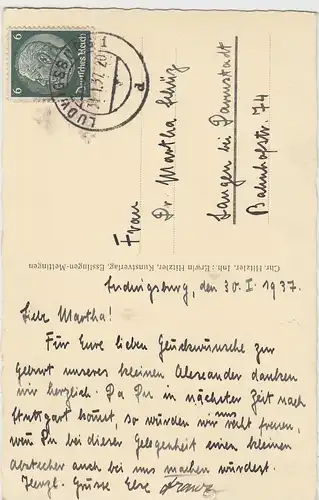 6 Deutsches Reich 6
LUDWIGSBURG
31.1.37. 20
d
Frau
Dr. Martha
Langen bei Darmstadt
Bahnhofstr. 74
Chr. Hitzler, Inh.: Erwin Hitzler, Kunstverlag, Esslingen-Mettingen
Ludwigsburg, den 30. I. 1937.
Liebe Martha!
Für Eure lieben Glückwünsche zur
Geburt unseres kleinen Alexander danken
wir herzlich. Da Du in nächster Zeit nach
Stuttgart kommst, so würden wir uns recht freuen,
wenn Du bei dieser Gelegenheit einen kleinen
Abstecher auch bei uns machen würdest.
Herzl. Grüsse Eure